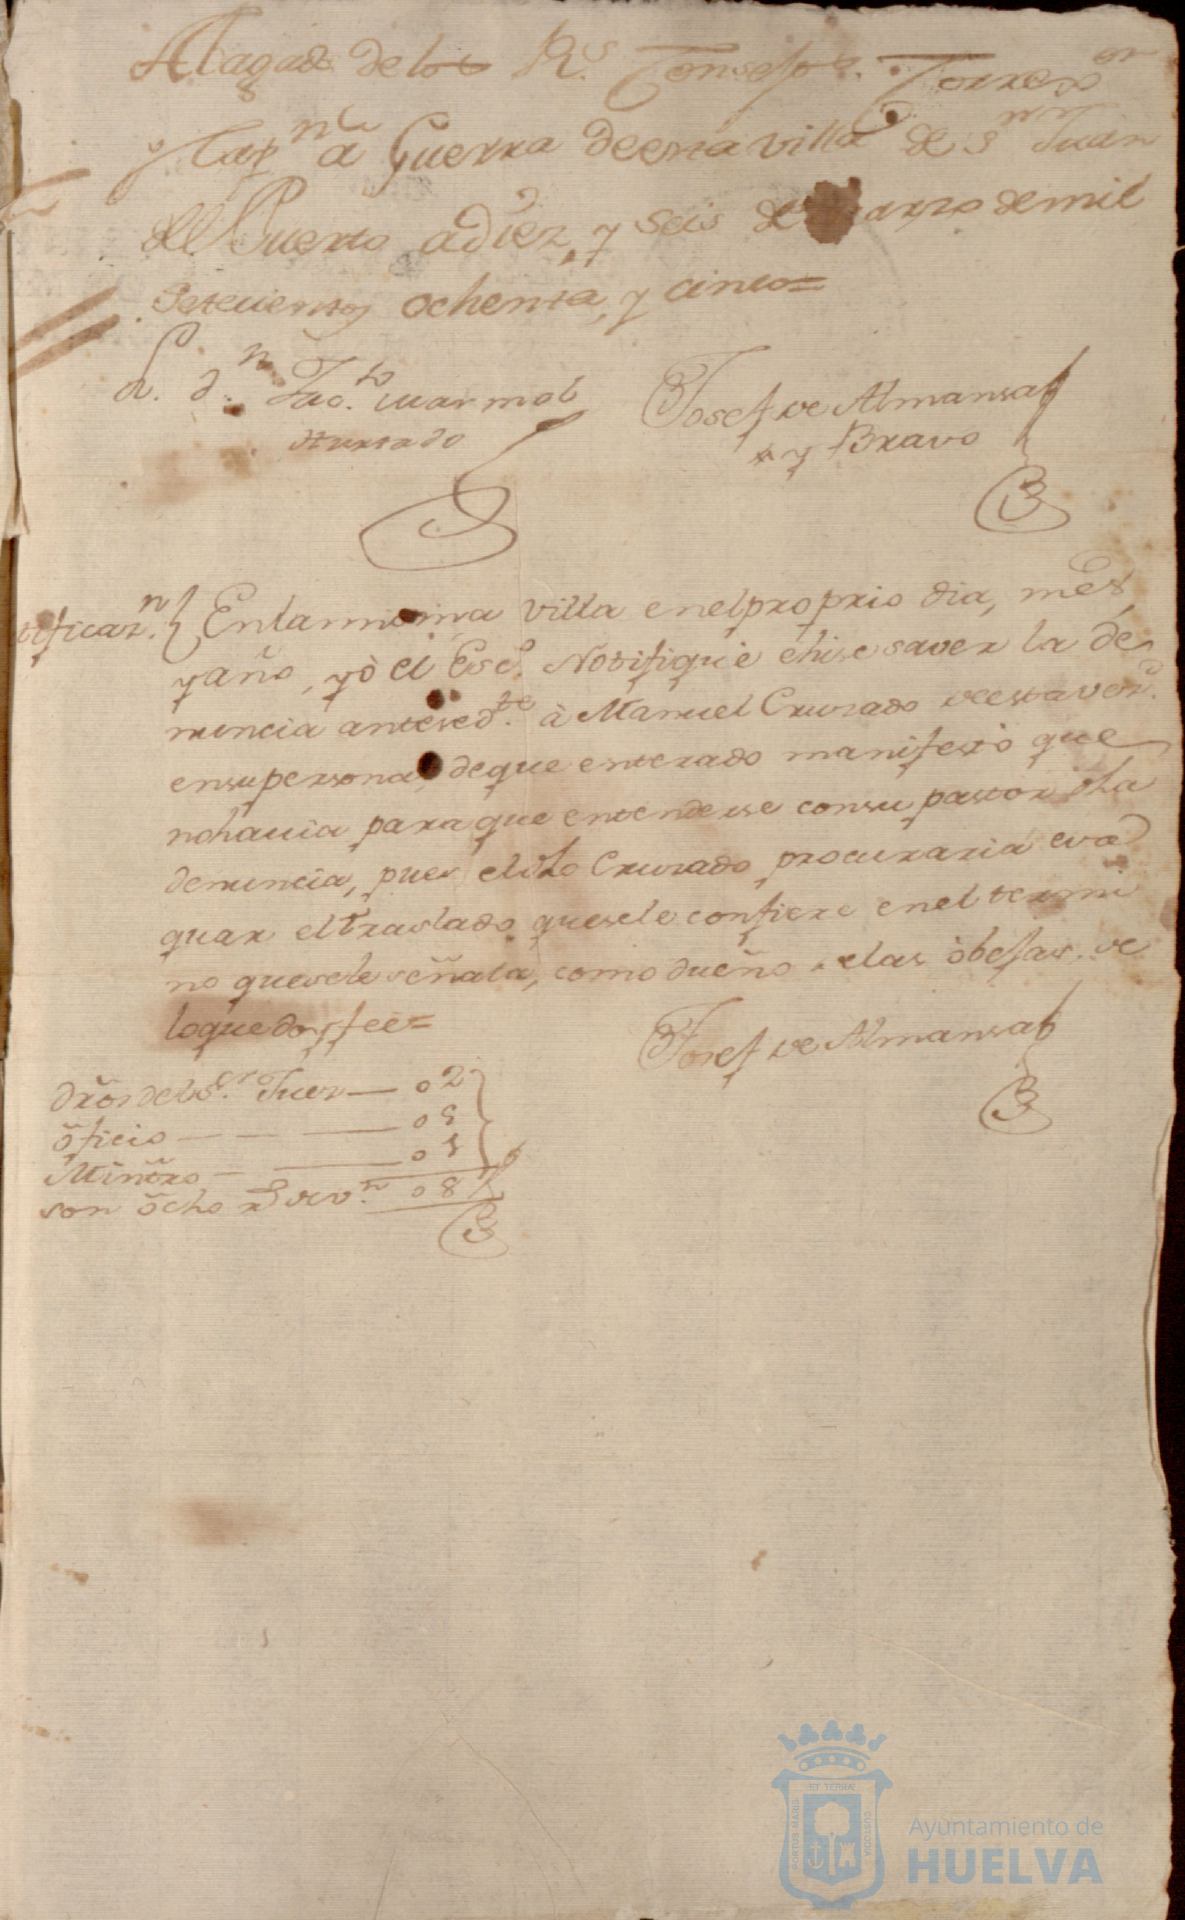 Abogado de los R.s Consejos. Correxor
y Capn a Guerra de esta villa de Sn Juan
del Puerto a diez, y seis de marzo de mil
setecientos ochenta, y cinco=
L. d.n Marmol
Hurtado
Josef de Almansa
y Bravo
tificaz.n { En la misma villa en el proprio dia, mes,
y año, yò el Esc.o Notifiquè e hise saver la de
nuncia antesed.te à Manuel Crusado de esta vez.d
en su persona, de que enterado manifestò que
no havia para que entenderse con su pastor dha
denuncia, pues el dho Crusado procuraria eva
quar el traslado que se le confiere en el termi
no que se le señala, como dueño elas obejas. de
lo que doy fee=
Josef de Almansa
dros del S.or Juez — 02
oficio — — — 05
Mintro — — 01
son ocho rs de v.n 08
ET TERRÆ
PORTUS MARIS
CUSTODIA
Ayuntamiento de
HUELVA